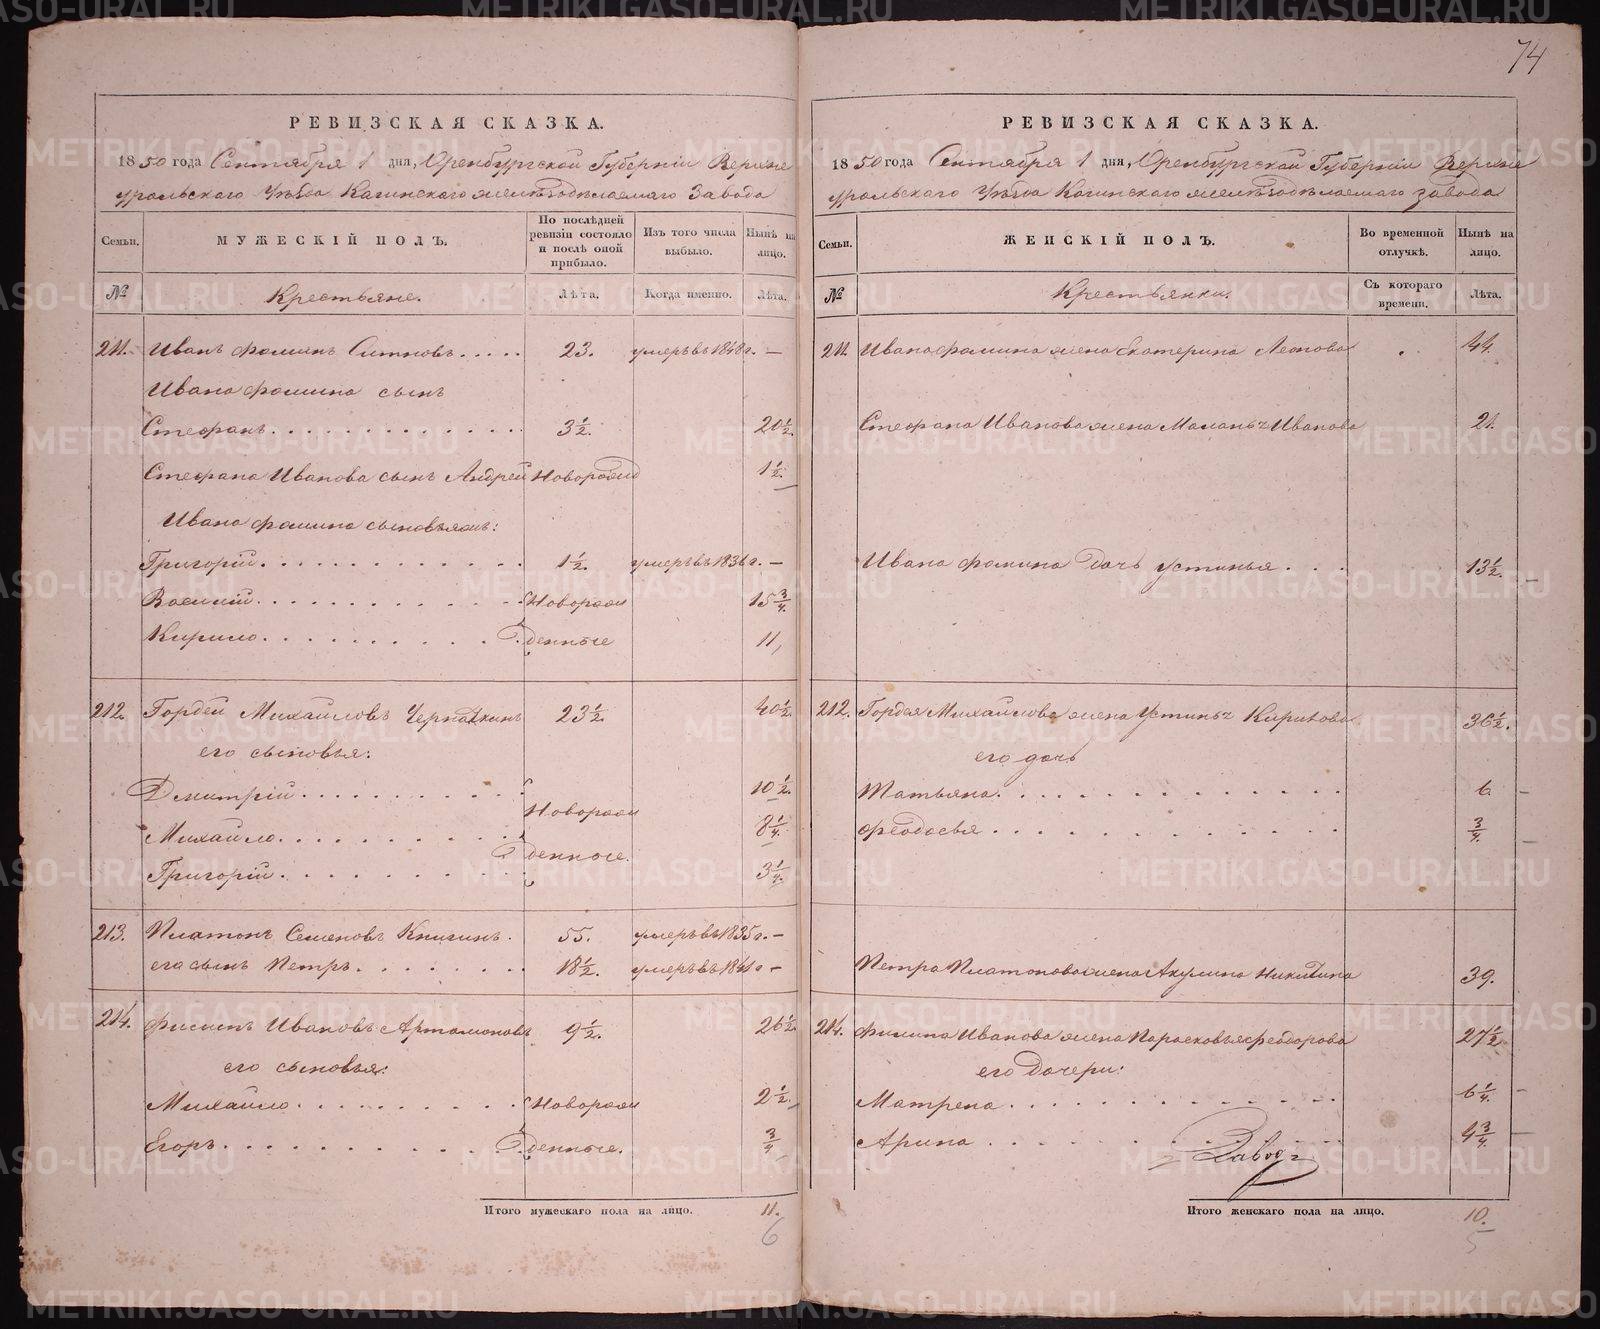 74
РЕВИЗСКАЯ СКАЗКА.
1850 года Сентября 1 дня, Оренбургской Губернiи Верхне
уральскаго Уѣзда Кагинскаго железодѣлаемаго Завода
Семьи.
МУЖЕСКІЙ ПОЛЪ.
По послѣдней ревизіи состояло и послѣ оной прибыло.
Изъ того числа выбыло.
Нынѣ на лицо.
№
Крестьяне.
Лѣта.
Когда именно.
Лѣта.
211. Иванъ Фоминъ Ситновъ..... 23. умеръ въ 1848 г. —
Ивана Фомина сынъ
Стефанъ. 3½. 20½.
Стефана Иванова сынъ Андрей Новорожд 1½.
Ивана Фомина сыновья:
Григорій. 1½. умеръ въ 1836 г. —
Василій. Новорож 15¾.
Кирило. денные 11,
212. Гордей Михайловъ 23½. 40½.
его сыновья:
Дмитрій. 10½.
Новорож
Михайло. 8¼.
денные.
Григорій. 3¼.
213. Платонъ Семеновъ Книгинъ. 55. умеръ въ 1835 г. —
его сынъ Петръ. 18½. умеръ въ 1841 г —
214. Филипъ Ивановъ Артамоновъ 9½. 26½.
его сыновья:
Михайло. Новорож 2½.
Егоръ. денные. ¾
Итого мужескаго пола на лицо. 11.
6
РЕВИЗСКАЯ СКАЗКА.
1850 года Сентября 1 дня, Оренбургской Губернiи Верхне
уральскаго Уѣзда Кагинскаго железодѣлаемаго завода
Семьи.
ЖЕНСКІЙ ПОЛЪ.
Во временной отлучкѣ.
Нынѣ на лицо.
№
Крестьянки.
Съ котораго времени.
Лѣта.
211. Ивана Фомина жена Екатерина Леонова 44.
Стефана Иванова жена Маланья Иванова 21.
Ивана Фомина дочь Устинья. . . . 13½.
212. Гордея Михайлова жена Устинья Кирилова 36½.
его дочь
Татьяна. 6.
Феодосья. ¾.
Петра Платонова жена Акулина Никитина 39.
214. Филипа Иванова жена Парасковья Феодорова 27½
его дочери:
Матрена. 6¼.
Арина. 4¾.
Завод
Итого женскаго пола на лицо. 10.
5
METRIKI.GASO-URAL.RU